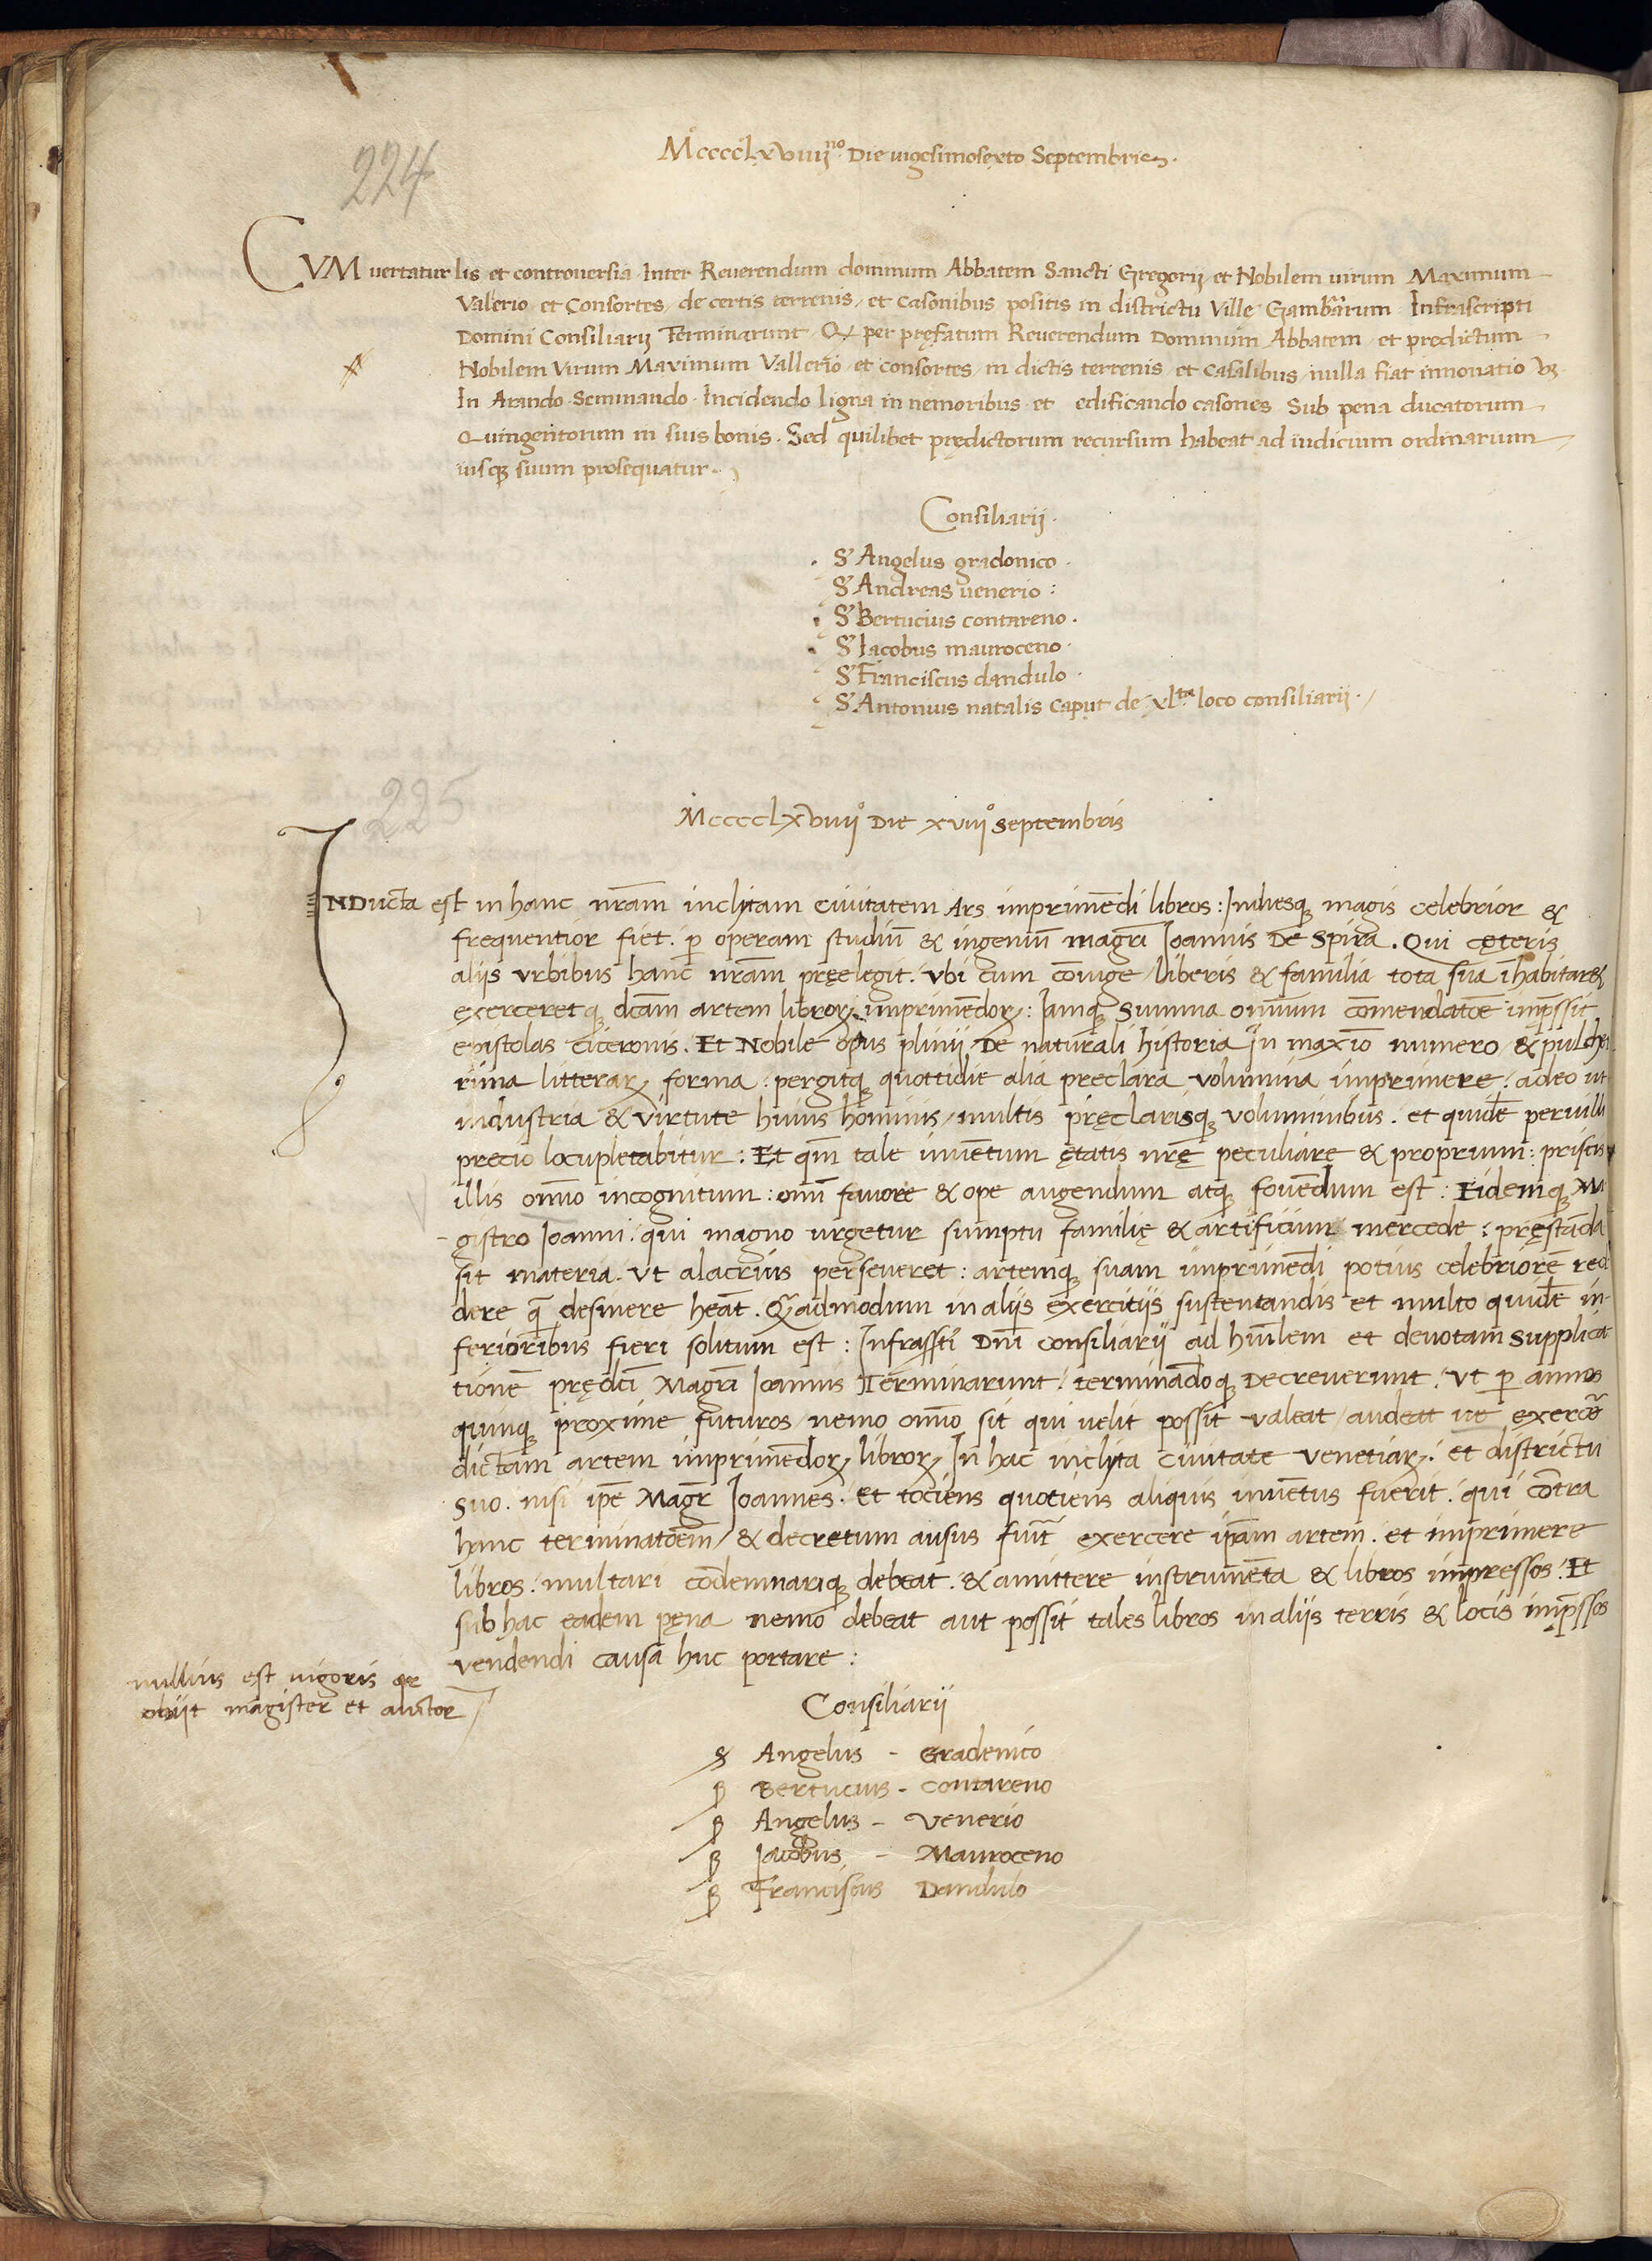 224
MccccLxviiii no. Die uigesimosexto Septembris.
CVM uertatur lis et controuersia Inter Reuerendum dominum Abbatem Sancti Gregorij et Nobilem uirum Maximum
Valerio et Consortes, de certis terrenis, et casonibus positis in districtu Ville Gambararum Infrascripti
Domini Consiliarij Terminarunt. Q per pręfatum Reuerendum Dominum Abbatem et predictum
Nobilem Virum Maximum Vallerio, et consortes, in dictis terrenis et casalibus, nulla fiat innouatio vz.
In Arando Seminando Incidendo ligna in nemoribus et edificando casones Sub pena ducatorum
Quingentorum in suis bonis. Sed quilibet prędictorum recursum habeat ad iudicium ordinarium
iusq3 suum prosequatur.
Consiliarij.
S Angelus gradonico.
S Andreas uenerio:
S Bertucius contareno.
S Iacobus mauroceno.
S Franciscus dandulo.
S Antonius natalis caput de xlta loco consiliarij.
225
MccccLxviiijo Die xviijo Septembris
INDucta est in hanc nrām inclytam ciuitatem Ars imprimēdi libros: Indiesq3 magis celebrior &
frequentior fiet. p̱ operam studiū & ingeniū magrī Ioannis De Spira. Qui cęteris
aliis vrbibus hanc nrām pręelegit. Vbi cum cōiuge, liberis & familia tota sua īhabitaret
exerceretq3 dcām artem libroꝝ imprimēdoꝝ: Iamq3 summa omnium cōmendatōe imp̄ssit
epistolas Ciceronis. Et Nobile opus plinij De naturali historia In maxīo numero, & pulcher
rima litteraꝝ forma. pergitq3 quottidie alia preclara volumina imprimere. adeo ut
industria & virtute huius hominis, multis pręclarisq3 voluminibus. et quidē peruili
precio locupletabitur: Et qm̄ tale inuētum ętatis nrę̄ peculiare & proprium: priscis
illis omīno incognitum: omī fauore & ope augendum atq3 fouēdum est: Eidemq3 Ma
gistro Ioanni. qui magno urgetur sumptu familię & artificium mercede: pręstāda
sit materia. Vt alacrius perseueret: artemq3 suam imprimēdi potius celebriorē red
dere q̄ desinere heāt. Q̄admodum in aliis exercitiis sustentandis et multo quidē in
ferioribus fieri solitum est: Infrassti Dnī consiliarij ad humlem et deuotam supplica
tionē prędcī Magrī Ioannis Terminarunt, terminādoq3 Decreuerunt. Vt p̱ annos
quinq3 proxime futuros, nemo omīno sit qui uelit possit valeat, audeat ue exercē
dictam artem imprimēdoꝝ libroꝝ In hac inclyta ciuitate Venetiaꝝ. et districtu
suo. nisi ipē Magr̄ Ioannes. Et tociens quotiens aliquis inuētus fuerit. qui cōtra
hanc terminatōem, & decretum ausus fuīt exercere ipām artem. et imprimere
libros. multari cōdemnariq3 debeat. & amittere instrumēta & libros impressos. Et
sub hac eadem pęna nemo debeat aut possit tales libros in aliis terris & locis imp̄ssos
vendendi causa huc portare:
nullius est uigoris qr
obijt magister et auctor
Consiliarii
S Angelus - Gradenico
S Bertucius - Contareno
S Angelus - Venerio
S Iacobus - Mauroceno
S Franciscus Dandulo